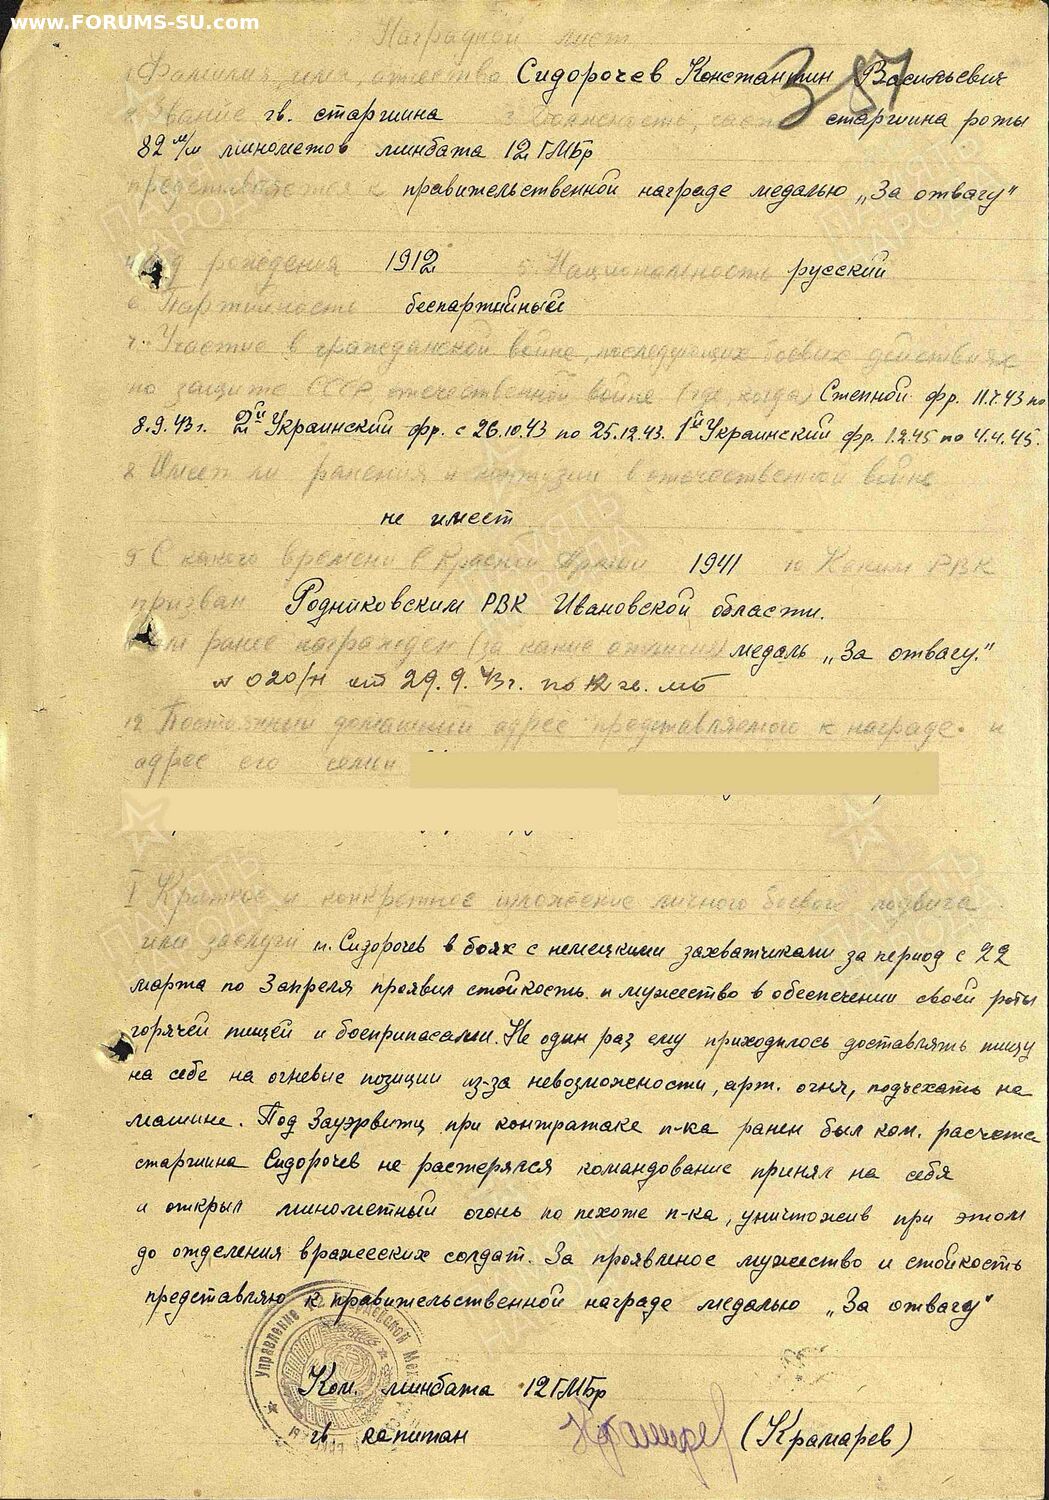 www.FORUMS-SU.com
Наградной лист
1. Фамилия, имя, отчество Сидорочев Константин Васильевич
2. Звание гв. старшина 3. Должность, часть старшина роты
82 м/м минометов минбата 12 ГМБр
представляется к правительственной награде медалью „За отвагу"
4. Год рождения 1912 5. Национальность русский
6. Партийность беспартийный
7. Участие в гражданской войне, последующих боевых действиях
по защите СССР, отечественной войне (где, когда) Степной фр. 11.7.43 по
8.9.43 г. 2й Украинский фр. с 26.10.43 по 25.12.43. 1й Украинский фр. 1.2.45 по 4.4.45.
8. Имеет ли ранения и контузии в отечественной войне
не имеет
9. С какого времени в Красной Армии 1941 10 Каким РВК
призван Родниковским РВК Ивановской области.
Чем ранее награжден (за какие отличия) медаль „За отвагу."
№ 020/н от 29.9.43 г. по 12 гв. мб
12 Постоянный домашний адрес представляемого к награде и
адрес его семьи
I Краткое и конкретное изложение личного боевого подвига
или заслуги т. Сидорочев в боях с немецкими захватчиками за период с 22
марта по 3 апреля проявил стойкость и мужество в обеспечении своей роты
горячей пищей и боеприпасами. Не один раз ему приходилось доставлять пищу
на себе на огневые позиции из-за невозможности, арт. огня, подъехать на
машине. Под Зауэрвитц при контратаке п-ка ранен был ком. расчета
старшина Сидорочев не растерялся командование принял на себя
и открыл минометный огонь по пехоте п-ка, уничтожив при этом
до отделения вражеских солдат. За проявленое мужество и стойкость
представляю к правительственной награде медалью „За отвагу"
Ком. минбата 12 ГМБр
гв. капитан (Крамарев)
ПАМЯТЬ НАРОДА